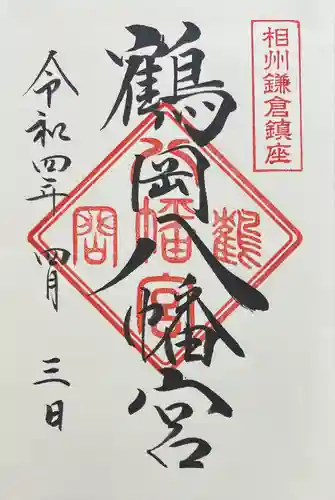 相州鎌倉鎮座
鶴岡八幡宮
鶴岡八幡宮
令和四年 四月 三日